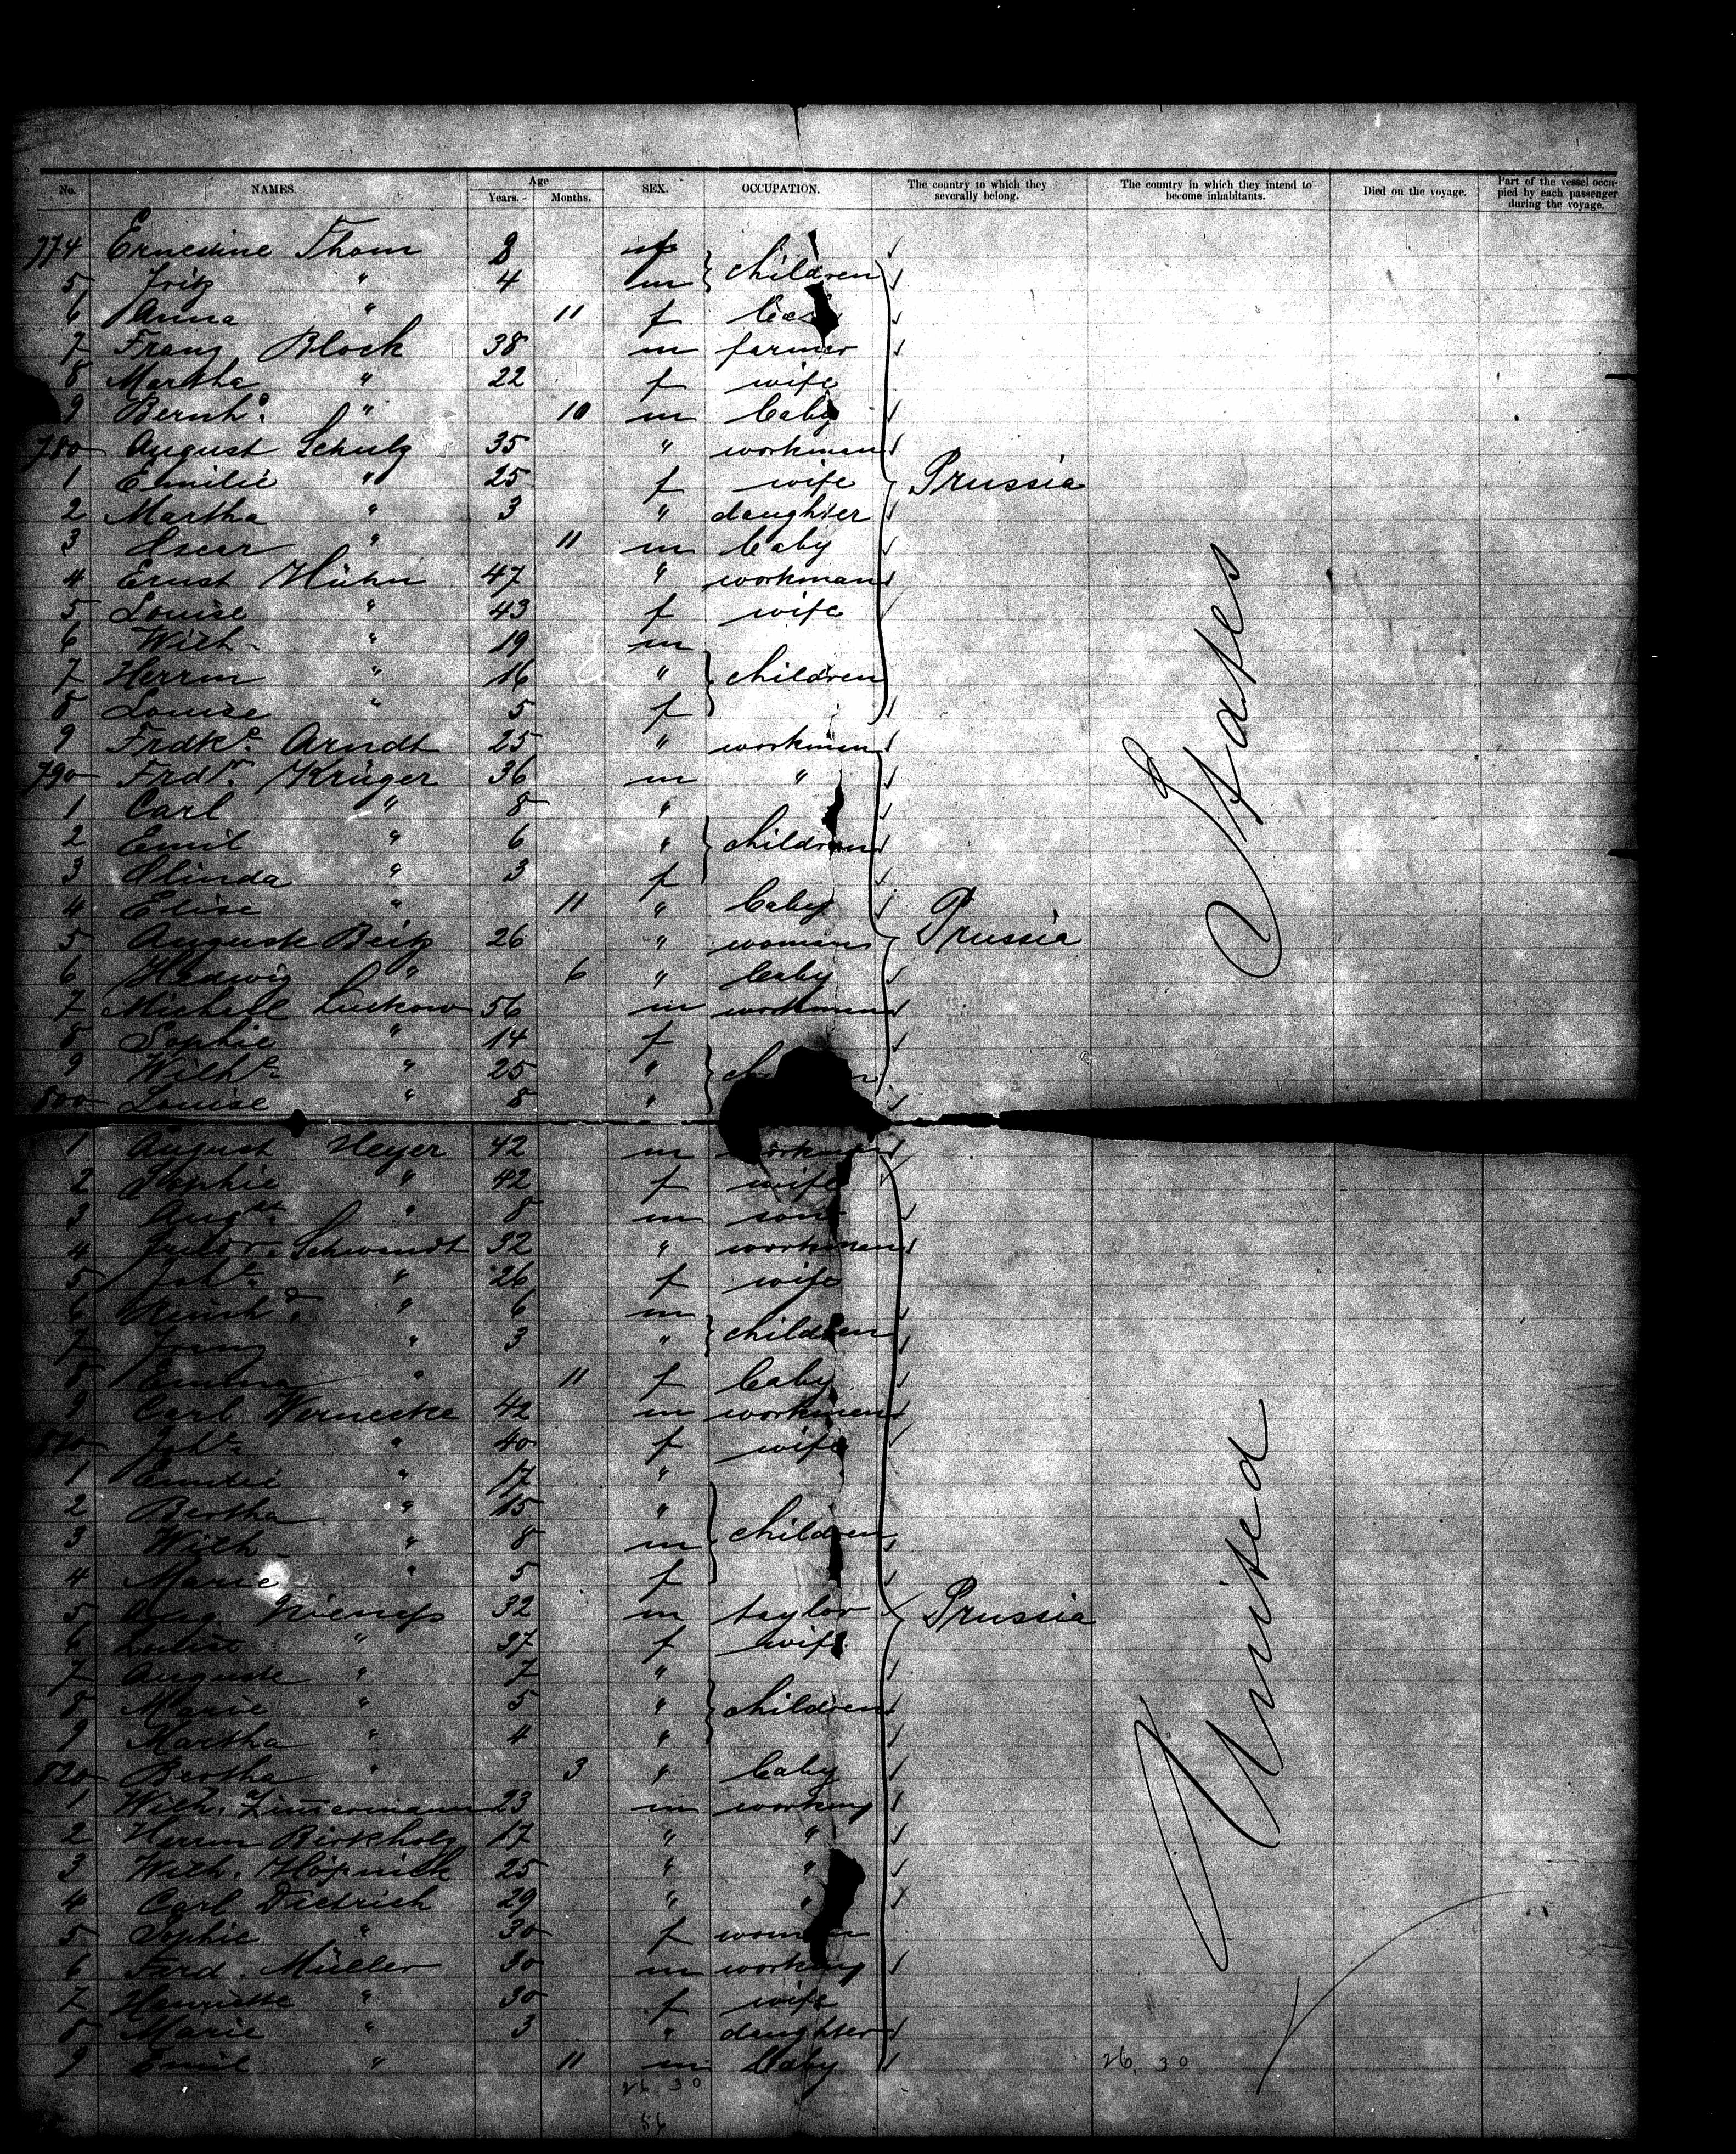 No. NAMES. Age Years. Months. SEX. OCCUPATION. The country to which they severally belong. The country in which they intend to become inhabitants. Died on the voyage. Part of the vessel occupied by each passenger during the voyage.
774 Ernestine Thom f
5 Fritz " 4 m children
6 Anna " 11 f
7 Franz Block 38 m farmer
8 Martha " 22 f wife
9 Bernh. " 10 m baby
780 August Schulz 35 " workman
1 Emilie " 25 f wife Prussia
2 Martha " 3 " daughter
3 Oscar " 11 m baby
4 Ernst Hühn 47 " workman
5 Louise " 43 f wife
6 Wilh. " 19 m
7 Herrm " 16 " children
8 Louise " 5 f
9 Frdke. Arndt 25 " workman
790 Frdr. Krüger 36 m "
1 Carl " 8 "
2 Emil " 6 " children
3 Olinda " 3 f
4 Elise " 11 " baby
5 Auguste Beitz 26 " woman Prussia
6 Hedwig " 6 " baby
7 Michael Lutkow 56 m workman
8 Sophie " 14 f
9 Wilhe. " 25 "
800 Louise " 8 "
1 August Heyer 42 m workman
2 Sophie " 42 f wife
3 Augst. " 8 m son
4 Schwandt 32 " workman
5 Johe. " 26 f wife
6 " 6 m
7 Franz " 3 " children
8 Emma " 11 f baby
9 Carl Werneske 42 m workmen
810 Johe. " 40 f wife
1 Emilie " 17 "
2 Bertha " 15 "
3 Wilh " 8 m children
4 Marie " 5 f
5 Aug 32 m taylor Prussia
6 " 37 f wife
7 Auguste " 7 "
8 Marie " 5 " children
9 Martha " 4 "
820 Bertha " 3 " baby
1 Wilh. Zimmermann 23 m working
2 Herrm Birkholz 17 " "
3 Wilh. Höpnick 25 " "
4 Carl Dietrich 29 " "
5 Sophie " 30 f woman
6 Ferd. Müller 30 m working
7 Henriette " 30 f wife
8 Marie " 3 " daughter
9 Emil " 11 m baby
26 30 26. 30
56
United States